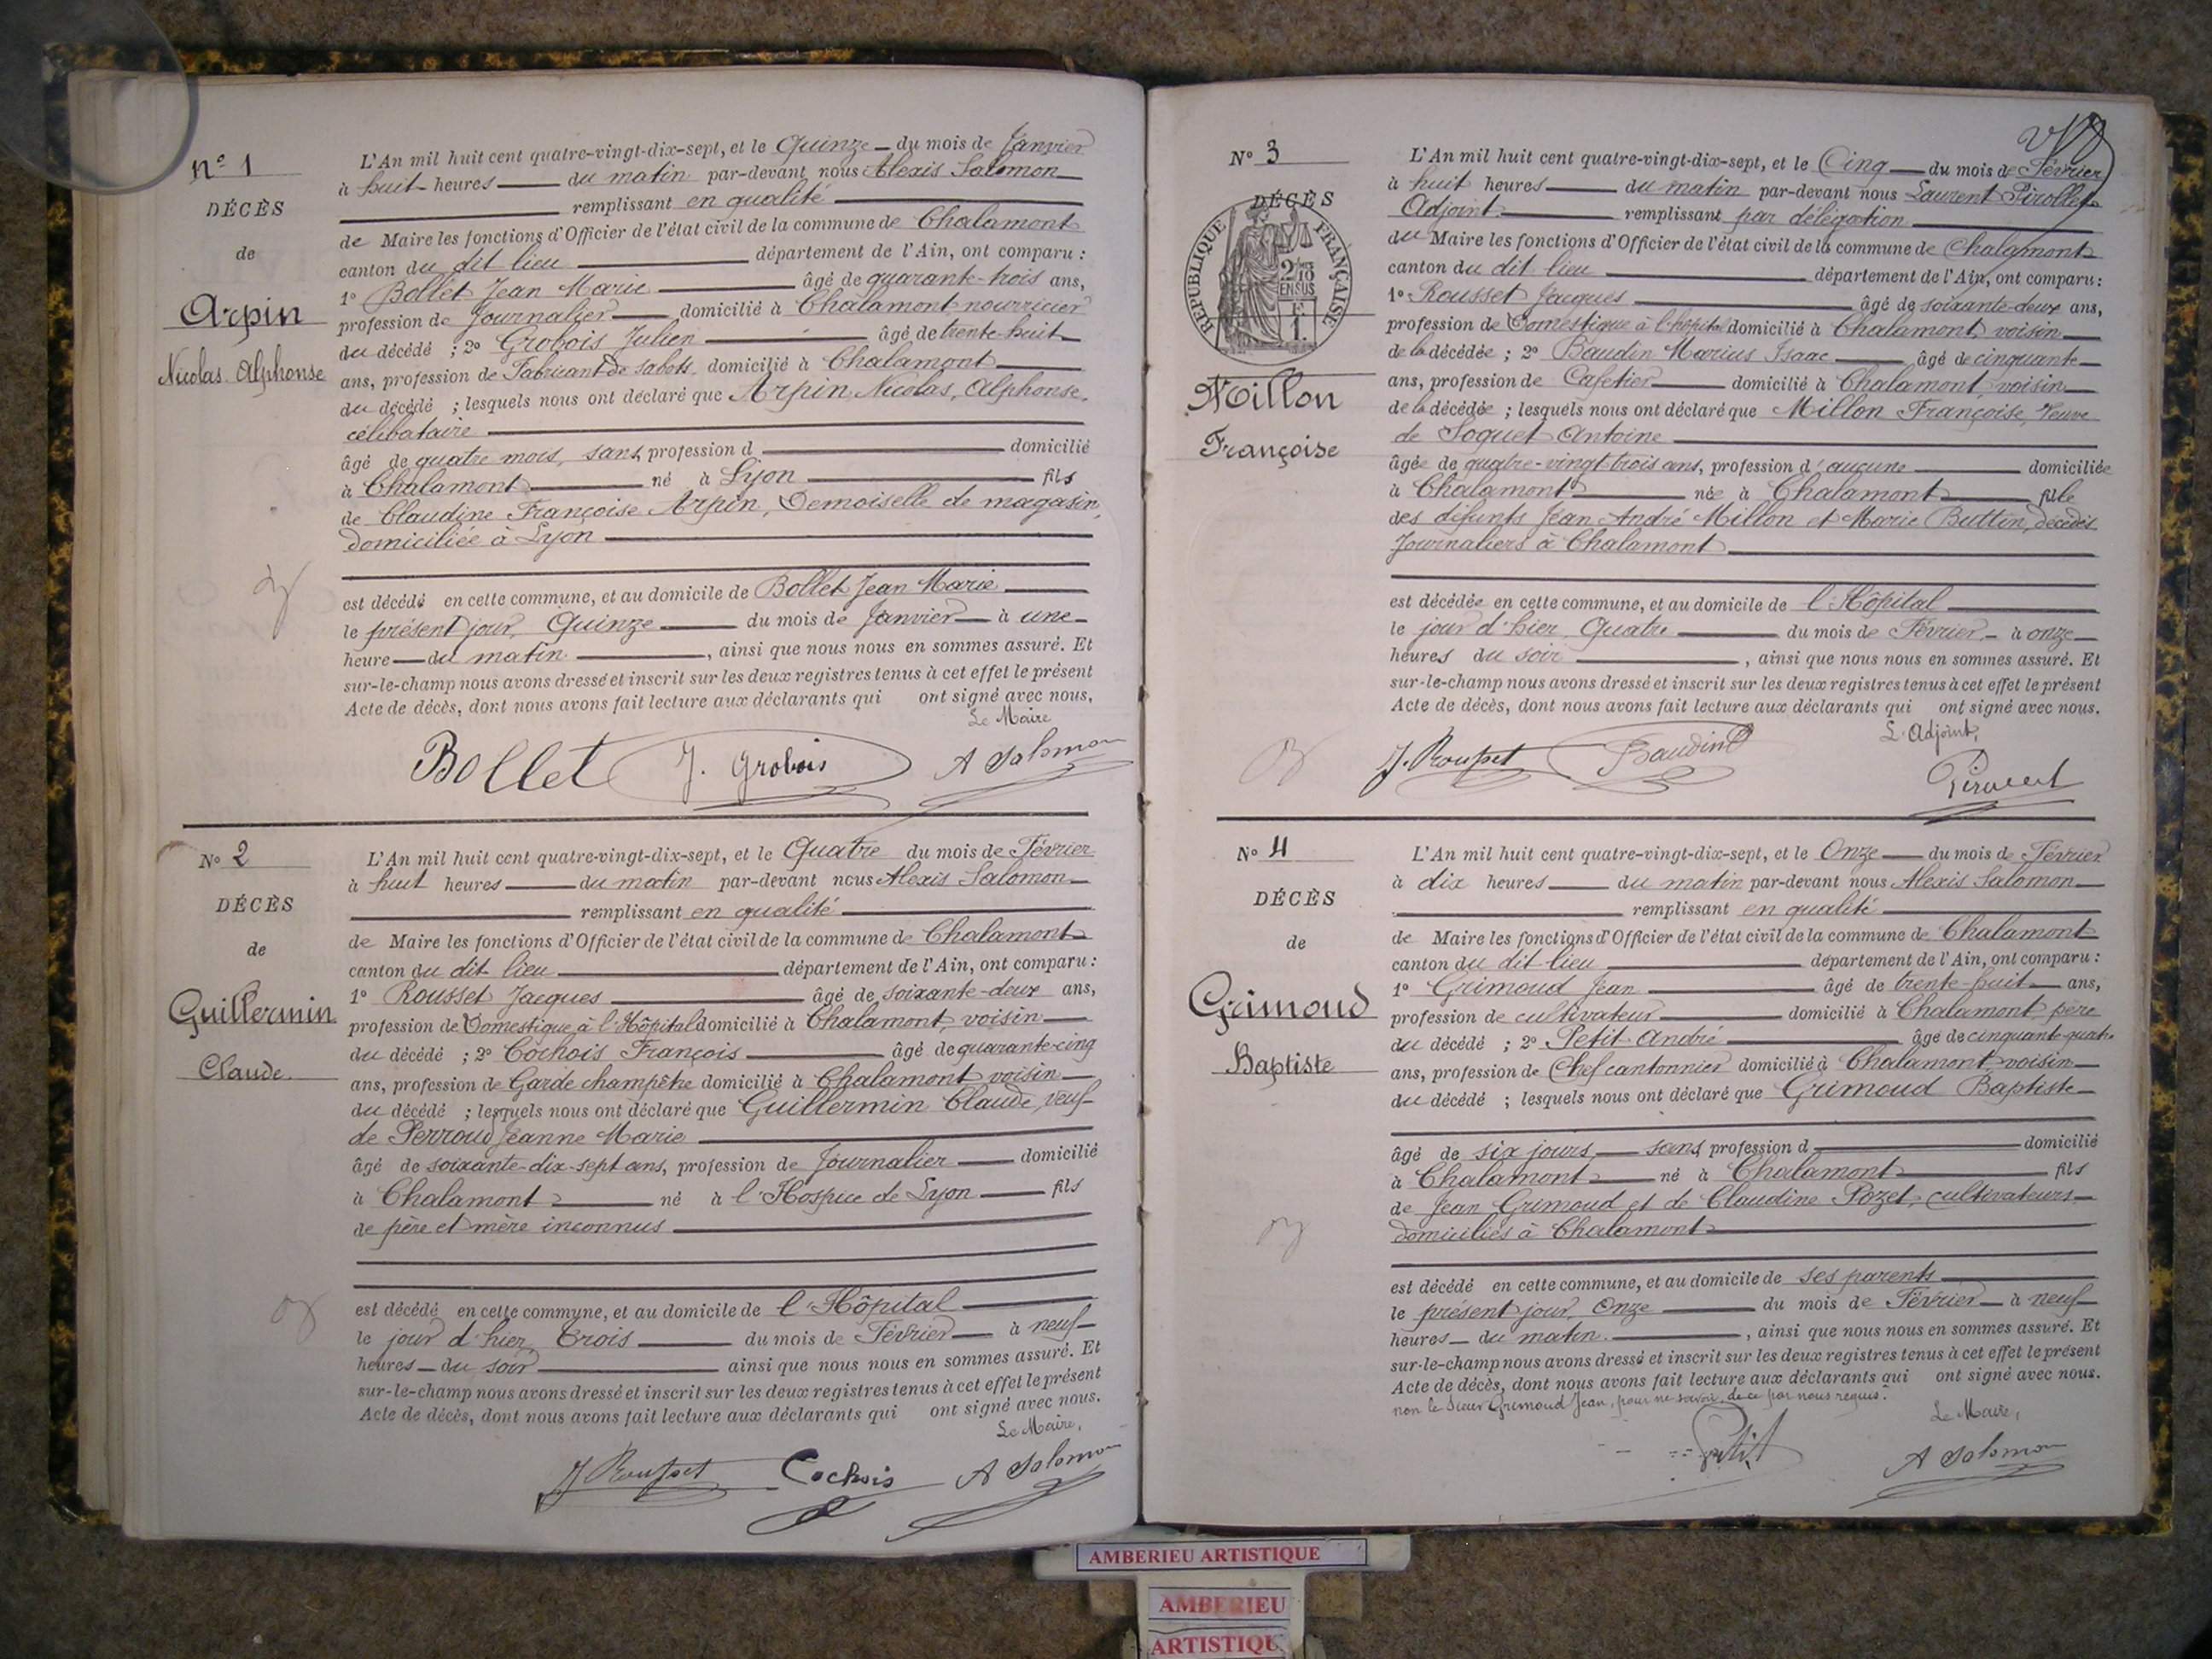 N° 1
DÉCÈS
de
Arpin
Nicolas Alphonse
L'An mil huit cent quatre-vingt-dix-sept, et le Quinze du mois de Janvier
à huit heures du matin par-devant nous Alexis Salomon
remplissant en qualité
de Maire les fonctions d'Officier de l'état civil de la commune de Chalamont
canton du dit lieu département de l'Ain, ont comparu :
1° Bollet Jean Marie âgé de quarante-trois ans,
profession de Journalier domicilié à Chalamont nourricier
du décédé ; 2° Grobois Julien âgé de trente-huit
ans, profession de Fabricant de sabots domicilié à Chalamont
du décédé ; lesquels nous ont déclaré que Arpin Nicolas, Alphonse,
célibataire
âgé de quatre mois, sans profession d domicilié
à Chalamont né à Lyon fils
de Claudine Françoise Arpin, Demoiselle de magasin,
domiciliée à Lyon
est décédé en cette commune, et au domicile de Bollet Jean Marie
le présent jour, Quinze du mois de Janvier à une
heure du matin , ainsi que nous nous en sommes assuré. Et
sur-le-champ nous avons dressé et inscrit sur les deux registres tenus à cet effet le présent
Acte de décès, dont nous avons fait lecture aux déclarants qui ont signé avec nous,
Le Maire
Bollet J. Grobois A Salomon
N° 2
DÉCÈS
de
Guillermin
Claude
L'An mil huit cent quatre-vingt-dix-sept, et le Quatre du mois de Février
à huit heures du matin par-devant nous Alexis Salomon
remplissant en qualité
de Maire les fonctions d'Officier de l'état civil de la commune de Chalamont
canton du dit lieu département de l'Ain, ont comparu :
1° Rousset Jacques âgé de soixante-deux ans,
profession de Domestique à l'Hôpital domicilié à Chalamont, voisin
du décédé ; 2° Cochois François âgé de quarante-cinq
ans, profession de Garde champêtre domicilié à Chalamont voisin
du décédé ; lesquels nous ont déclaré que Guillermin Claude, veuf
de Perroud Jeanne Marie
âgé de soixante-dix-sept ans, profession de Journalier domicilié
à Chalamont né à l'Hospice de Lyon fils
de père et mère inconnus
est décédé en cette commune, et au domicile de l'Hôpital
le jour d'hier, Trois du mois de Février à neuf
heures du soir ainsi que nous nous en sommes assuré. Et
sur-le-champ nous avons dressé et inscrit sur les deux registres tenus à cet effet le présent
Acte de décès, dont nous avons fait lecture aux déclarants qui ont signé avec nous.
Le Maire,
J. Rousset Cochois A Salomon
N° 3
DÉCÈS
RÉPUBLIQUE FRANÇAISE
2/10
EN SUS
Millon
Françoise
L'An mil huit cent quatre-vingt-dix-sept, et le Cinq du mois de Février
à huit heures du matin par-devant nous Laurent Pirollet
Adjoint remplissant par délégation
du Maire les fonctions d'Officier de l'état civil de la commune de Chalamont
canton du dit lieu département de l'Ain, ont comparu :
1° Rousset Jacques âgé de soixante-deux ans,
profession de Domestique à l'hôpital domicilié à Chalamont, voisin
de la décédée ; 2° Baudin Marius Isaac âgé de cinquante
ans, profession de Cafetier domicilié à Chalamont, voisin
de la décédée ; lesquels nous ont déclaré que Millon Françoise, Veuve
de Soquet Antoine
âgée de quatre-vingt-trois ans, profession d'aucune domiciliée
à Chalamont née à Chalamont fille
des défunts Jean André Millon et Marie Buttin, décédés
Journaliers à Chalamont
est décédée en cette commune, et au domicile de l'Hôpital
le jour d'hier, Quatre du mois de Février à onze
heures du soir , ainsi que nous nous en sommes assuré. Et
sur-le-champ nous avons dressé et inscrit sur les deux registres tenus à cet effet le présent
Acte de décès, dont nous avons fait lecture aux déclarants qui ont signé avec nous.
L'Adjoint,
J. Rousset Baudin
N° 4
DÉCÈS
de
Grimoud
Baptiste
L'An mil huit cent quatre-vingt-dix-sept, et le Onze du mois de Février
à dix heures du matin par-devant nous Alexis Salomon
remplissant en qualité
de Maire les fonctions d'Officier de l'état civil de la commune de Chalamont
canton du dit lieu département de l'Ain, ont comparu :
1° Grimoud Jean âgé de trente-huit ans,
profession de cultivateur domicilié à Chalamont, père
du décédé ; 2° Petit André âgé de cinquante-quatre
ans, profession de Chef cantonnier domicilié à Chalamont voisin
du décédé ; lesquels nous ont déclaré que Grimoud Baptiste
âgé de six jours sans profession d domicilié
à Chalamont né à Chalamont fils
de Jean Grimoud et de Claudine Pozet, cultivateurs
domiciliés à Chalamont
est décédé en cette commune, et au domicile de ses parents
le présent jour, Onze du mois de Février à neuf
heures du matin , ainsi que nous nous en sommes assuré. Et
sur-le-champ nous avons dressé et inscrit sur les deux registres tenus à cet effet le présent
Acte de décès, dont nous avons fait lecture aux déclarants qui ont signé avec nous.
non le Sieur Grimoud Jean, pour ne savoir, de ce par nous requis.
Le Maire,
Petit A Salomon
AMBERIEU ARTISTIQUE
AMBERIEU
ARTISTIQU